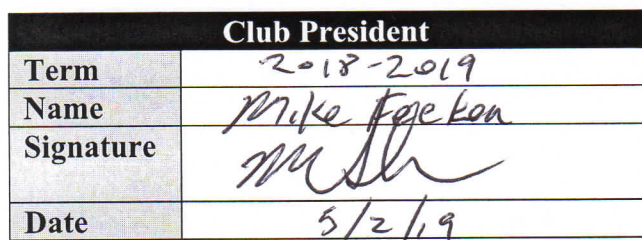 Club President
Term 2018-2019
Name Mike
Signature
Date 5/2/19